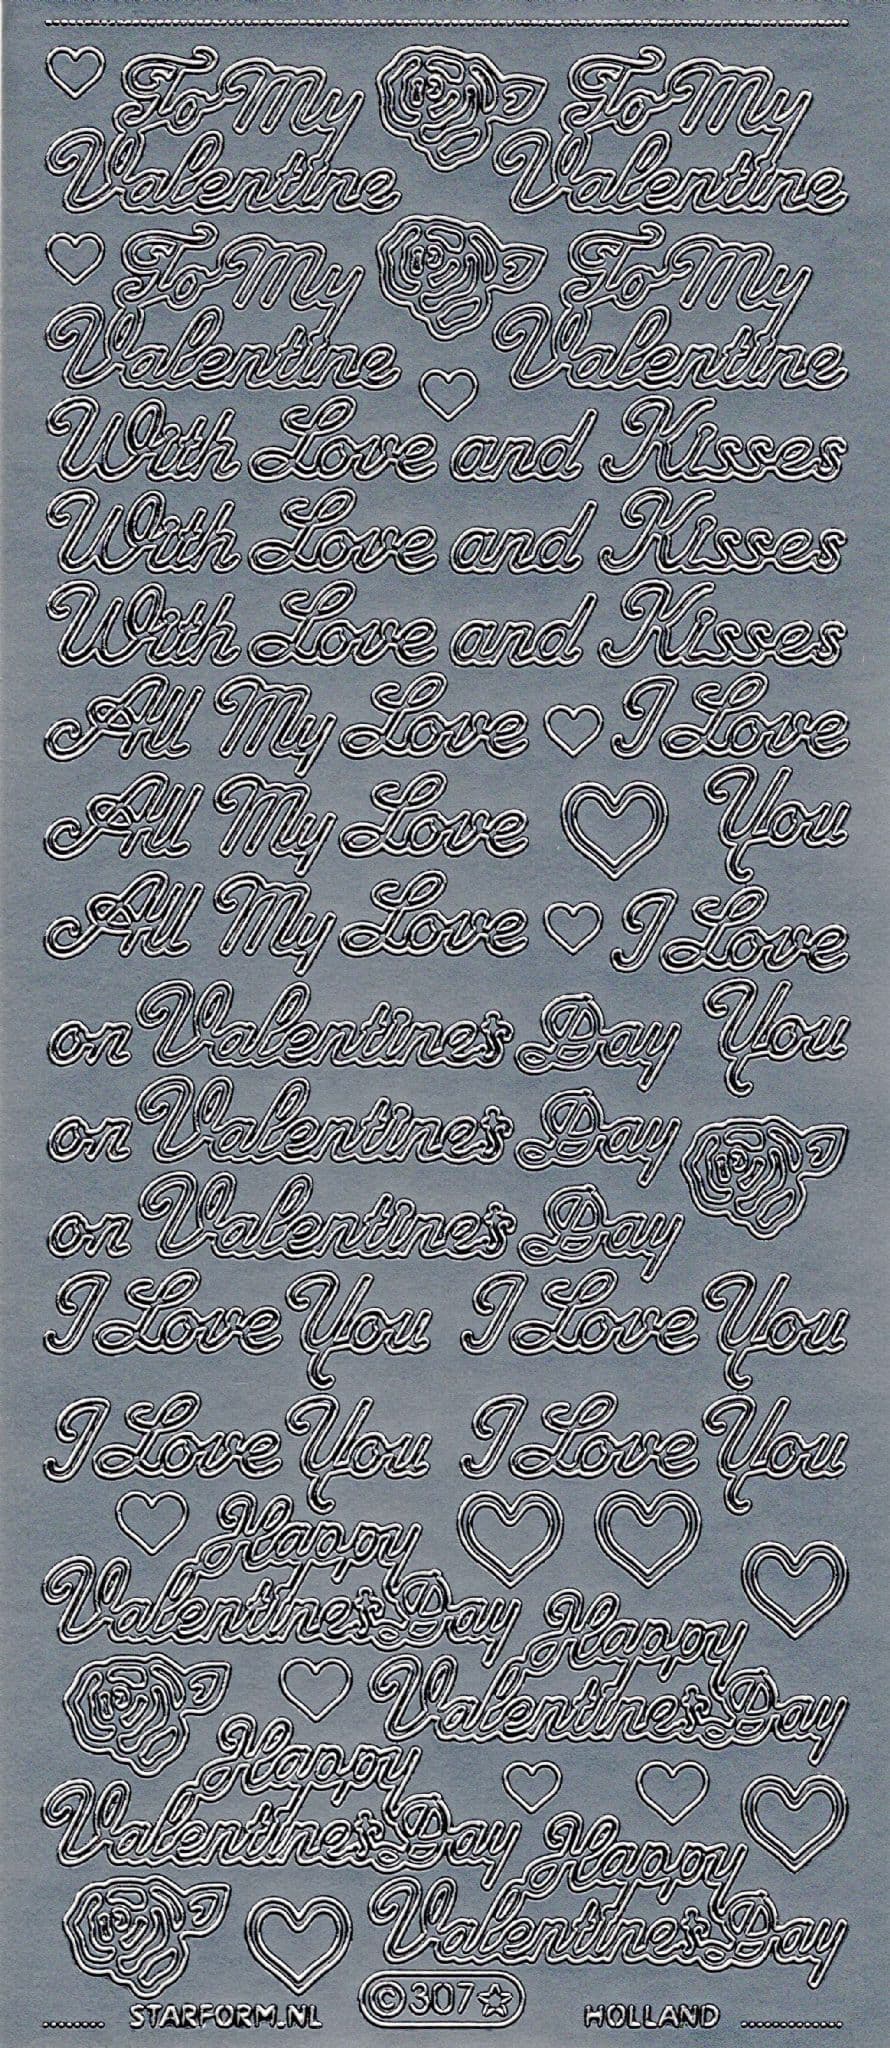 To My To My
Valentine Valentine
To My To My
Valentine Valentine
With Love and Kisses
With Love and Kisses
With Love and Kisses
All My Love I Love
All My Love You
All My Love I Love
on Valentines Day You
on Valentines Day
on Valentines Day
I Love You I Love You
I Love You I Love You
Happy
Valentines Day
Happy
Valentines Day
Happy
Valentines Day
Happy
Valentines Day
STARFORM.NL ©307 HOLLAND